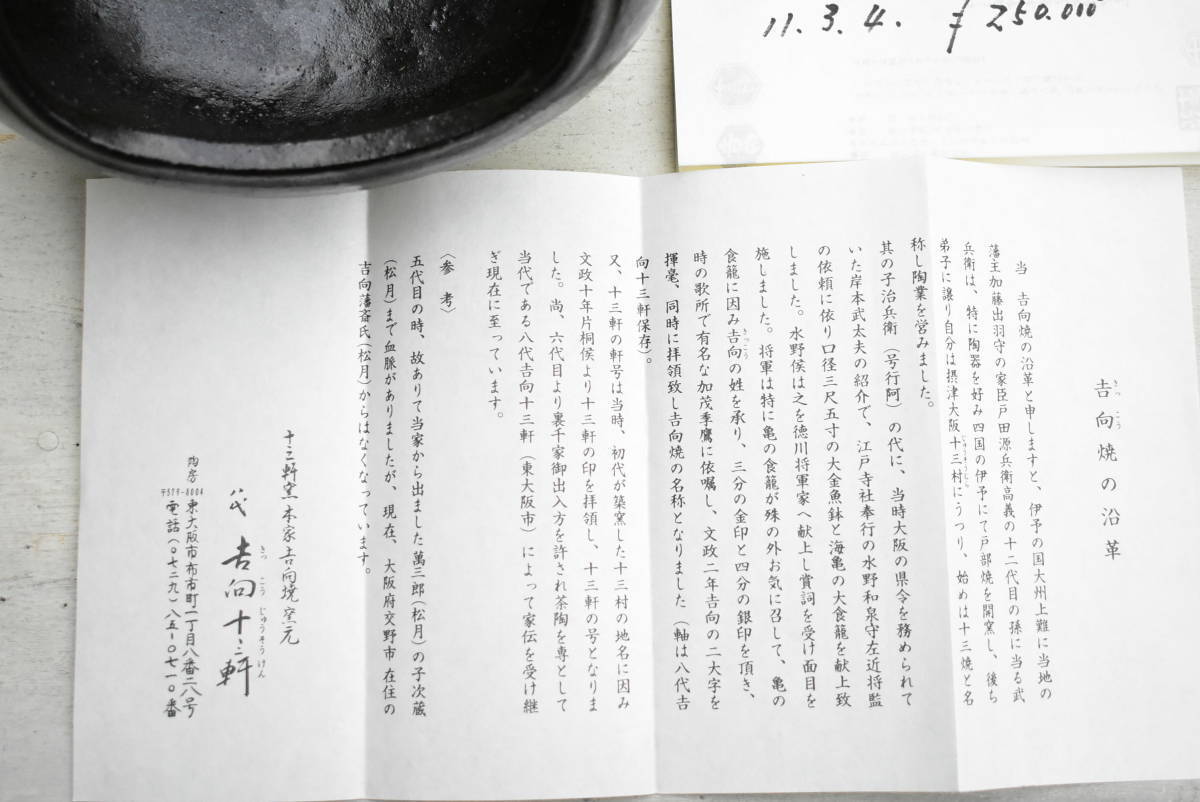 11.3.4. ¥250.000
吉向焼の沿革
きっこう
当 吉向焼の沿革と申しますと、伊予の国大州上難に当地の
藩主加藤出羽守の家臣戸田源兵衛高義の十二代目の孫に当る武
兵衛は、特に陶器を好み四国の伊予にて戸部焼を開窯し、後ち
弟子に譲り自分は摂津大阪十三村にうつり、始めは十三焼と名
じゅうそうむら
称し陶業を営みました。
其の子治兵衛(号行阿)の代に、当時大阪の県令を務められて
いた岸本武太夫の紹介で、江戸寺社奉行の水野和泉守左近将監
の依頼に依り口径三尺五寸の大金魚鉢と海亀の大食籠を献上致
しました。水野侯は之を徳川将軍家へ献上し賞詞を受け面目を
施しました。将軍は特に亀の食籠が殊の外お気に召して、亀の
食籠に因み吉向の姓を承り、三分の金印と四分の銀印を頂き、
きっこう
時の歌所で有名な加茂季鷹に依嘱し、文政二年吉向の二大字を
揮毫、同時に拝領致し吉向焼の名称となりました(軸は八代吉
向十三軒保存)。
又、十三軒の軒号は当時、初代が築窯した十三村の地名に因み
文政十年片桐侯より十三軒の印を拝領し、十三軒の号となりま
した。尚、六代目より裏千家御出入方を許され茶陶を専として
当代である八代吉向十三軒(東大阪市)によって家伝を受け継
ぎ現在に至っています。
〈参考〉
五代目の時、故ありて当家から出ました萬三郎(松月)の子次蔵
(松月)まで血脈がありましたが、現在、大阪府交野市在住の
吉向藩斎氏(松月)からはなくなっています。
十三軒窯本家吉向焼窯元
八代 吉向十三軒
きっ こう じゅう そう けん
陶房 東大阪市布市町一丁目八番二八号
〒579-8004
電話(〇七二九)八五-〇七一〇番